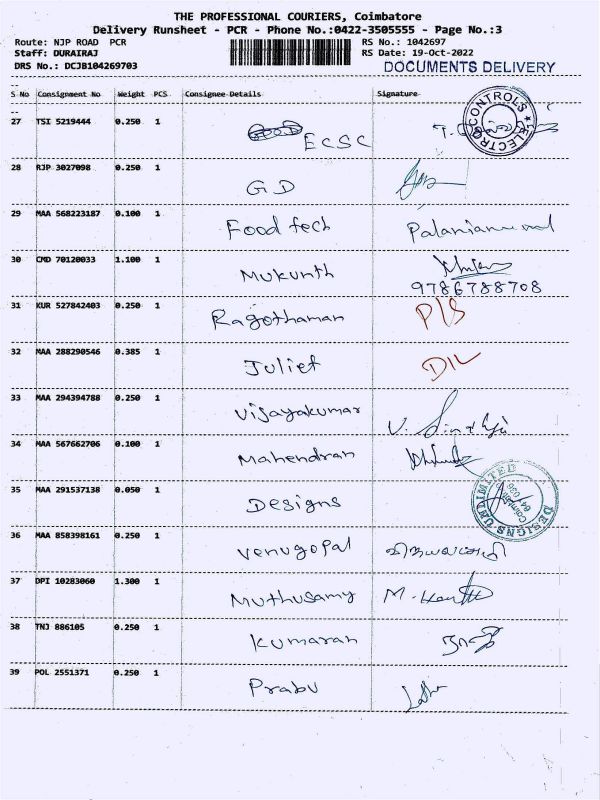 THE PROFESSIONAL COURIERS, Coimbatore
Delivery Runsheet - PCR - Phone No.:0422-3505555 - Page No.:3
Route: NJP ROAD PCR RS No.: 1042697
Staff: DURAIRAJ RS Date: 19-Oct-2022
DRS No.: DCJB104269703 DOCUMENTS DELIVERY
S No Consignment No Weight PCS Consignee Details Signature
27 TSI 5219444 0.250 1 ECSC
CONTROLS ELECTRO
28 RJP 3027098 0.250 1 GD
29 MAA 568223187 0.100 1 Food tech Palaniammal
30 CMD 70120033 1.100 1 Mukunth
9786788708
31 KUR 527842403 0.250 1 Ragothaman P/S
32 MAA 288290546 0.385 1 Juliet D/L
33 MAA 294394788 0.250 1 Vijayakumar
34 MAA 567662706 0.100 1 Mahendran
35 MAA 291537138 0.050 1 Designs
DESIGNS UNLIMITED
36 MAA 858398161 0.250 1 Venugopal
37 DPI 10283060 1.300 1 Muthusamy
38 TNJ 886105 0.250 1 Kumaran
39 POL 2551371 0.250 1 Prabu